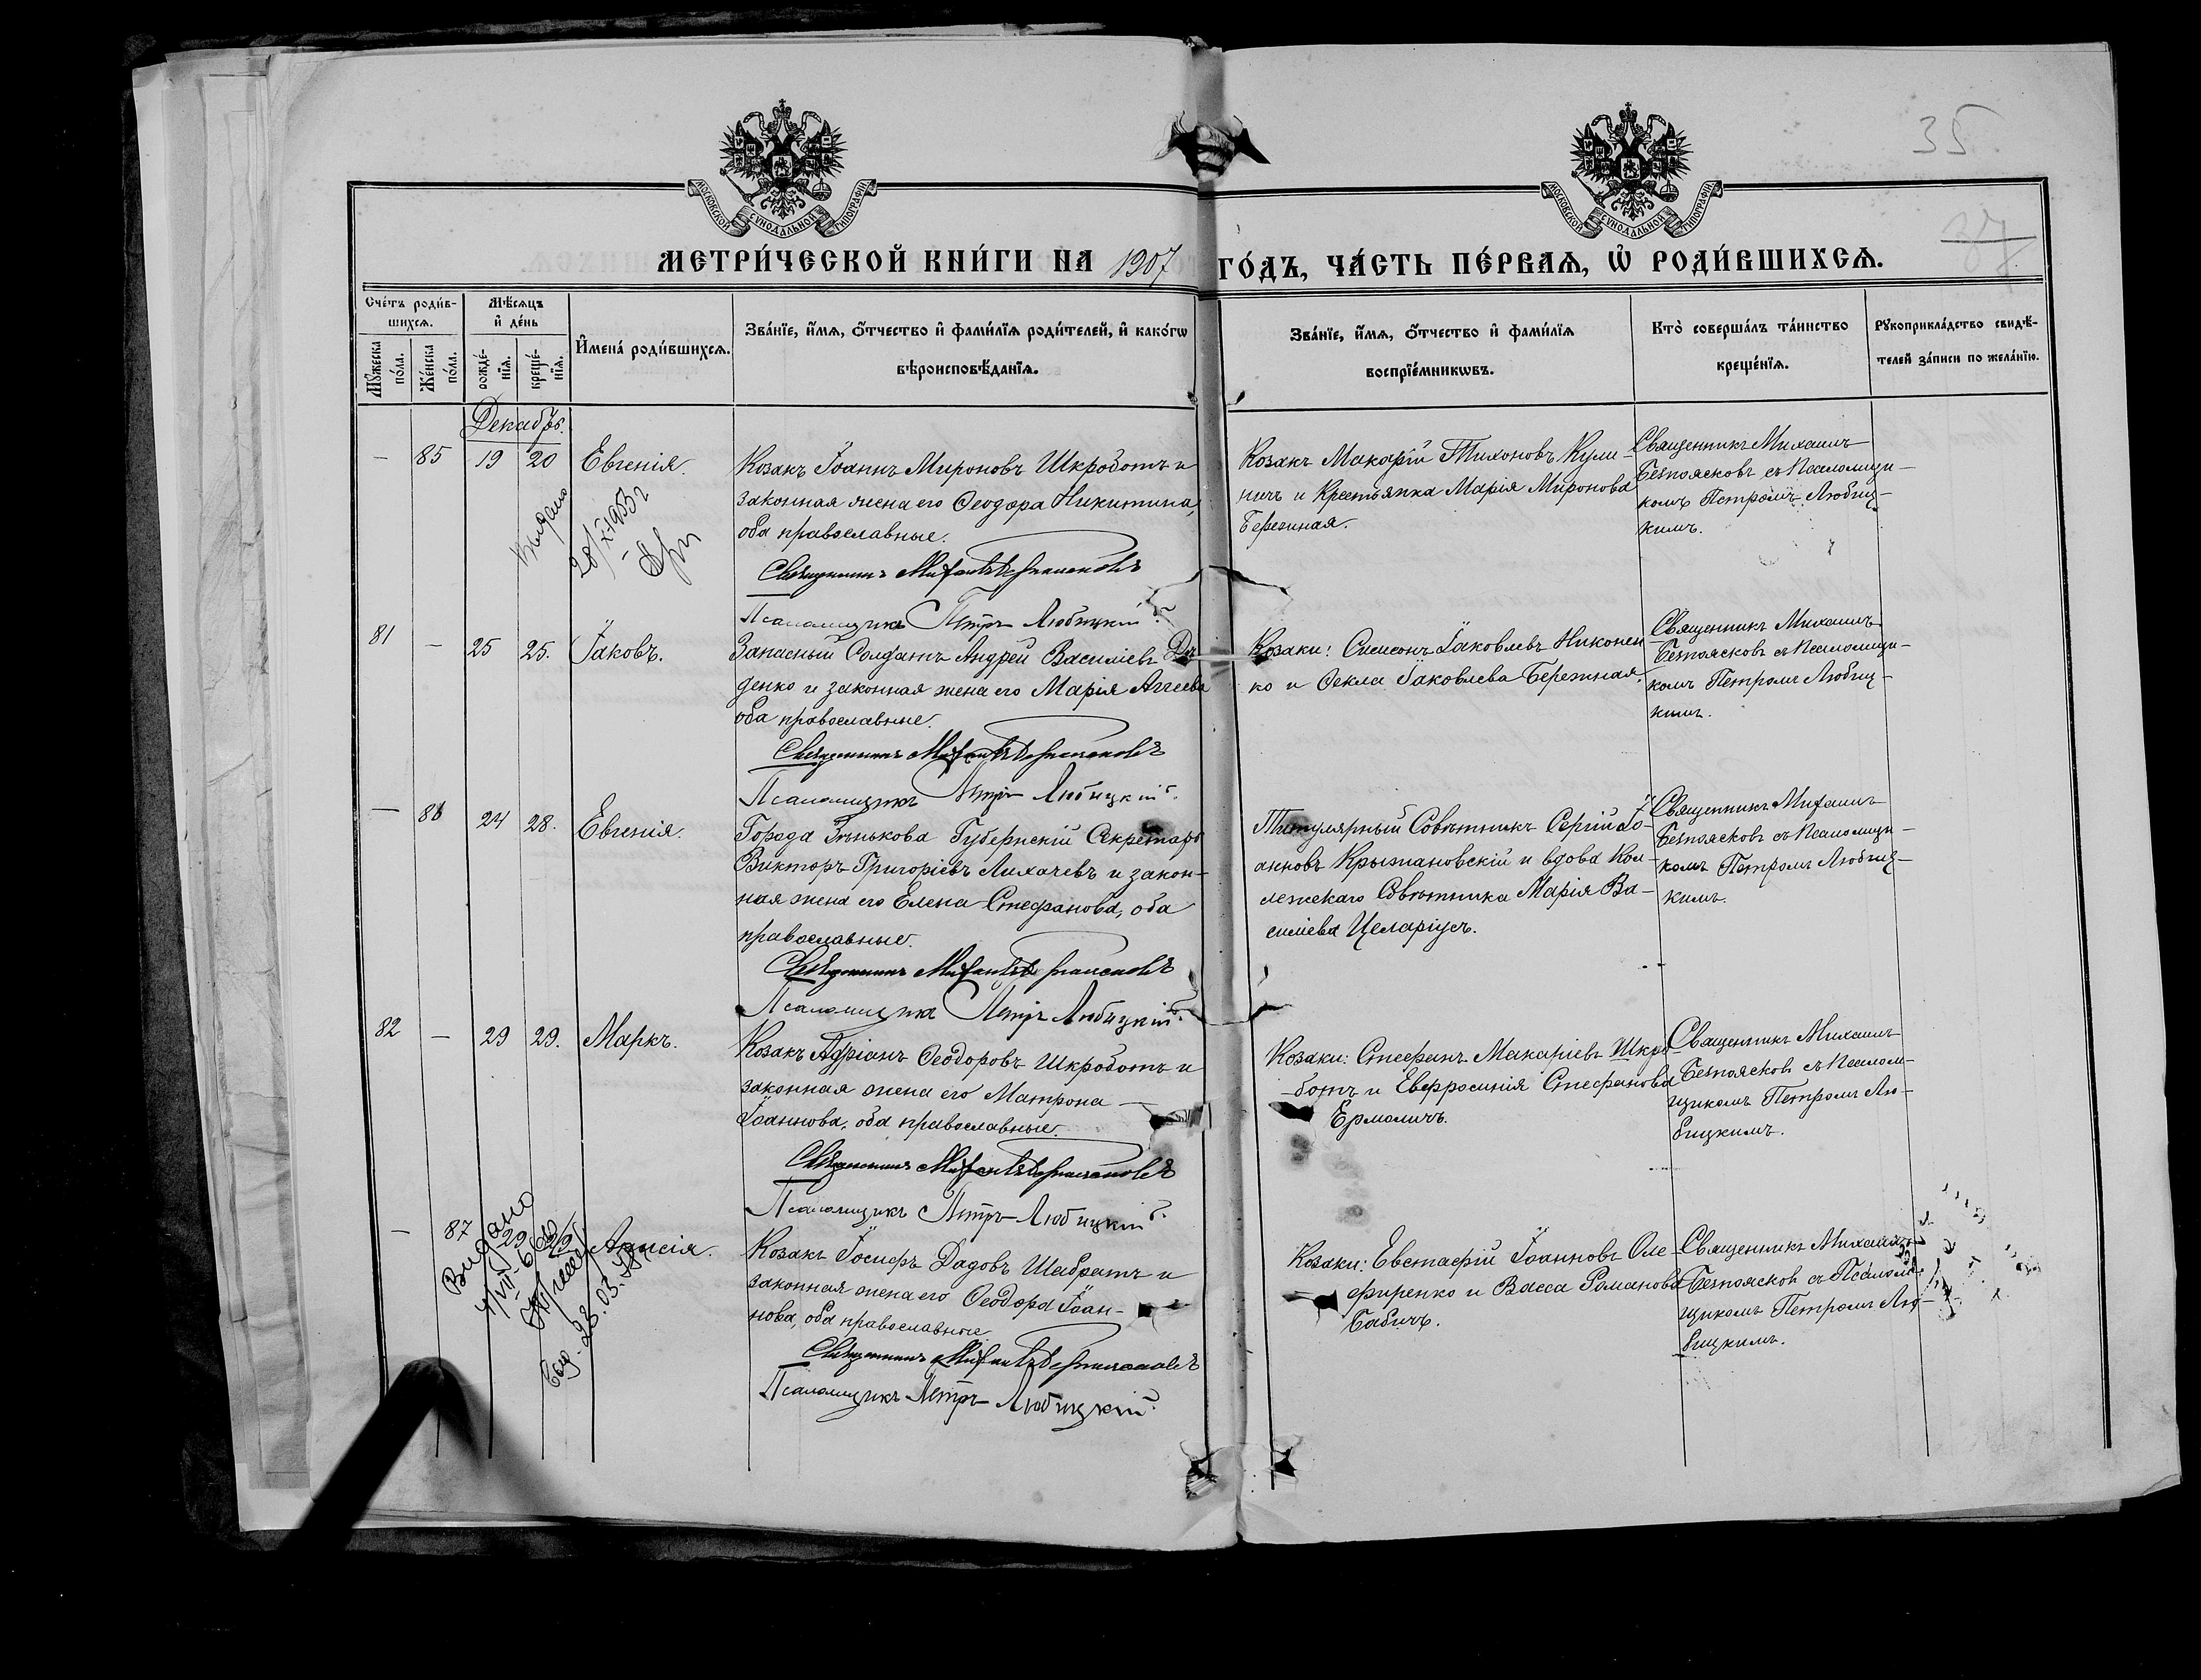 35
37
МОСКОВСКОЙ СУНОДАЛЬНОЙ ТИПОГРАФІИ
МОСКОВСКОЙ СУНОДАЛЬНОЙ ТИПОГРАФІИ
МЕТРИ́ЧЕСКОЙ КНИ́ГИ НА 1907 ГО́ДЪ, ЧА́СТЬ ПЕ́РВАѦ, Ѡ҆ РОДИ́ВШИХСѦ.
Сче́тъ роди́в-
шихсѧ.
Мꙋ́жеска по́ла.
Же́нска по́ла.
Мѣ́сѧцъ
и҆ де́нь
рожде́-
нїѧ.
креще́-
нїѧ.
И҆мена̀ роди́вшихсѧ.
Зва́нїе, и҆́мѧ, ѻ҆́тчество и҆ фами́лїѧ роди́телей, и҆ како́гѡ
вѣроисповѣ́данїѧ.
Зва́нїе, и҆́мѧ, ѻ҆́тчество и҆ фами́лїѧ
воспрїе́мникѡвъ.
Кто̀ соверша́лъ та́инство
креще́нїѧ.
Рꙋкоприкла́дство свидѣ́-
телей за́писи по жела́нїю.
Декабрь.
— 85 19 20 Евгенія.
Козакъ Іоаннъ Мироновъ Шкроботъ и
законная жена его Ѳеодора Никитина,
оба православные.
Священникъ Михаилъ Безпоясковъ
Псаломщикъ Петръ Любицкій.
Козакъ Макарій Тихоновъ Кули-
ничъ и Крестьянка Марія Миронова
Бережная.
Священникъ Михаилъ
Безпоясковъ съ Псаломщи-
комъ Петромъ Любиц-
кимъ.
81 — 25 25. Іаковъ.
Запасный Солдатъ Андрей Василіевъ
денко и законная жена его Марія Аггеева
оба православные.
Священникъ Михаилъ Безпоясковъ
Псаломщикъ Петръ Любицкій.
Козаки: Симеонъ Іаковлевъ Никонен
ко и Ѳекла Іаковлева Бережная.
Священникъ Михаилъ
Безпоясковъ съ Псаломщи-
комъ Петромъ Любиц-
кимъ.
— 86 24 28. Евгенія.
Города Зѣнькова Губернскій Секретарь
Викторъ Григоріевъ Лихачевъ и закон-
ная жена его Елена Стефанова, оба
православные.
Священникъ Михаилъ Безпоясковъ
Псаломщикъ Петръ Любицкій.
Титулярный Совѣтникъ Сергій Іо-
анновъ Крыжановскій и вдова Кол-
лежскаго Совѣтника Марія Ва-
силіева Целаріусъ.
Священникъ Михаилъ
Безпоясковъ съ Псаломщи-
комъ Петромъ Любиц-
кимъ.
82 — 29 29. Маркъ.
Козакъ Адріанъ Ѳеодоровъ Шкроботъ и
законная жена его Матрона
Іоаннова, оба православные.
Священникъ Михаилъ Безпоясковъ
Псаломщикъ Петръ Любицкій.
Козаки: Стефанъ Макаріевъ Шкро-
ботъ и Евфросинія Стефанова
Ермоличъ.
Священникъ Михаилъ
Безпоясков съ Псалом-
щикомъ Петромъ Лю-
бицкимъ.
— 87 29 29 Анисія.
Видано
Козакъ Іосифъ Дадовъ Шабратъ и
законная жена его Ѳеодора Іоан-
нова, оба православные.
Священникъ Михаилъ Безпоясковъ
Псаломщикъ Петръ Любицкій.
Козаки: Евстафій Іоанновъ Оле-
фиренко и Васса Романова
Бабичъ.
Священникъ Михаилъ
Безпоясков съ Псалом-
щикомъ Петромъ Лю-
бицкимъ.